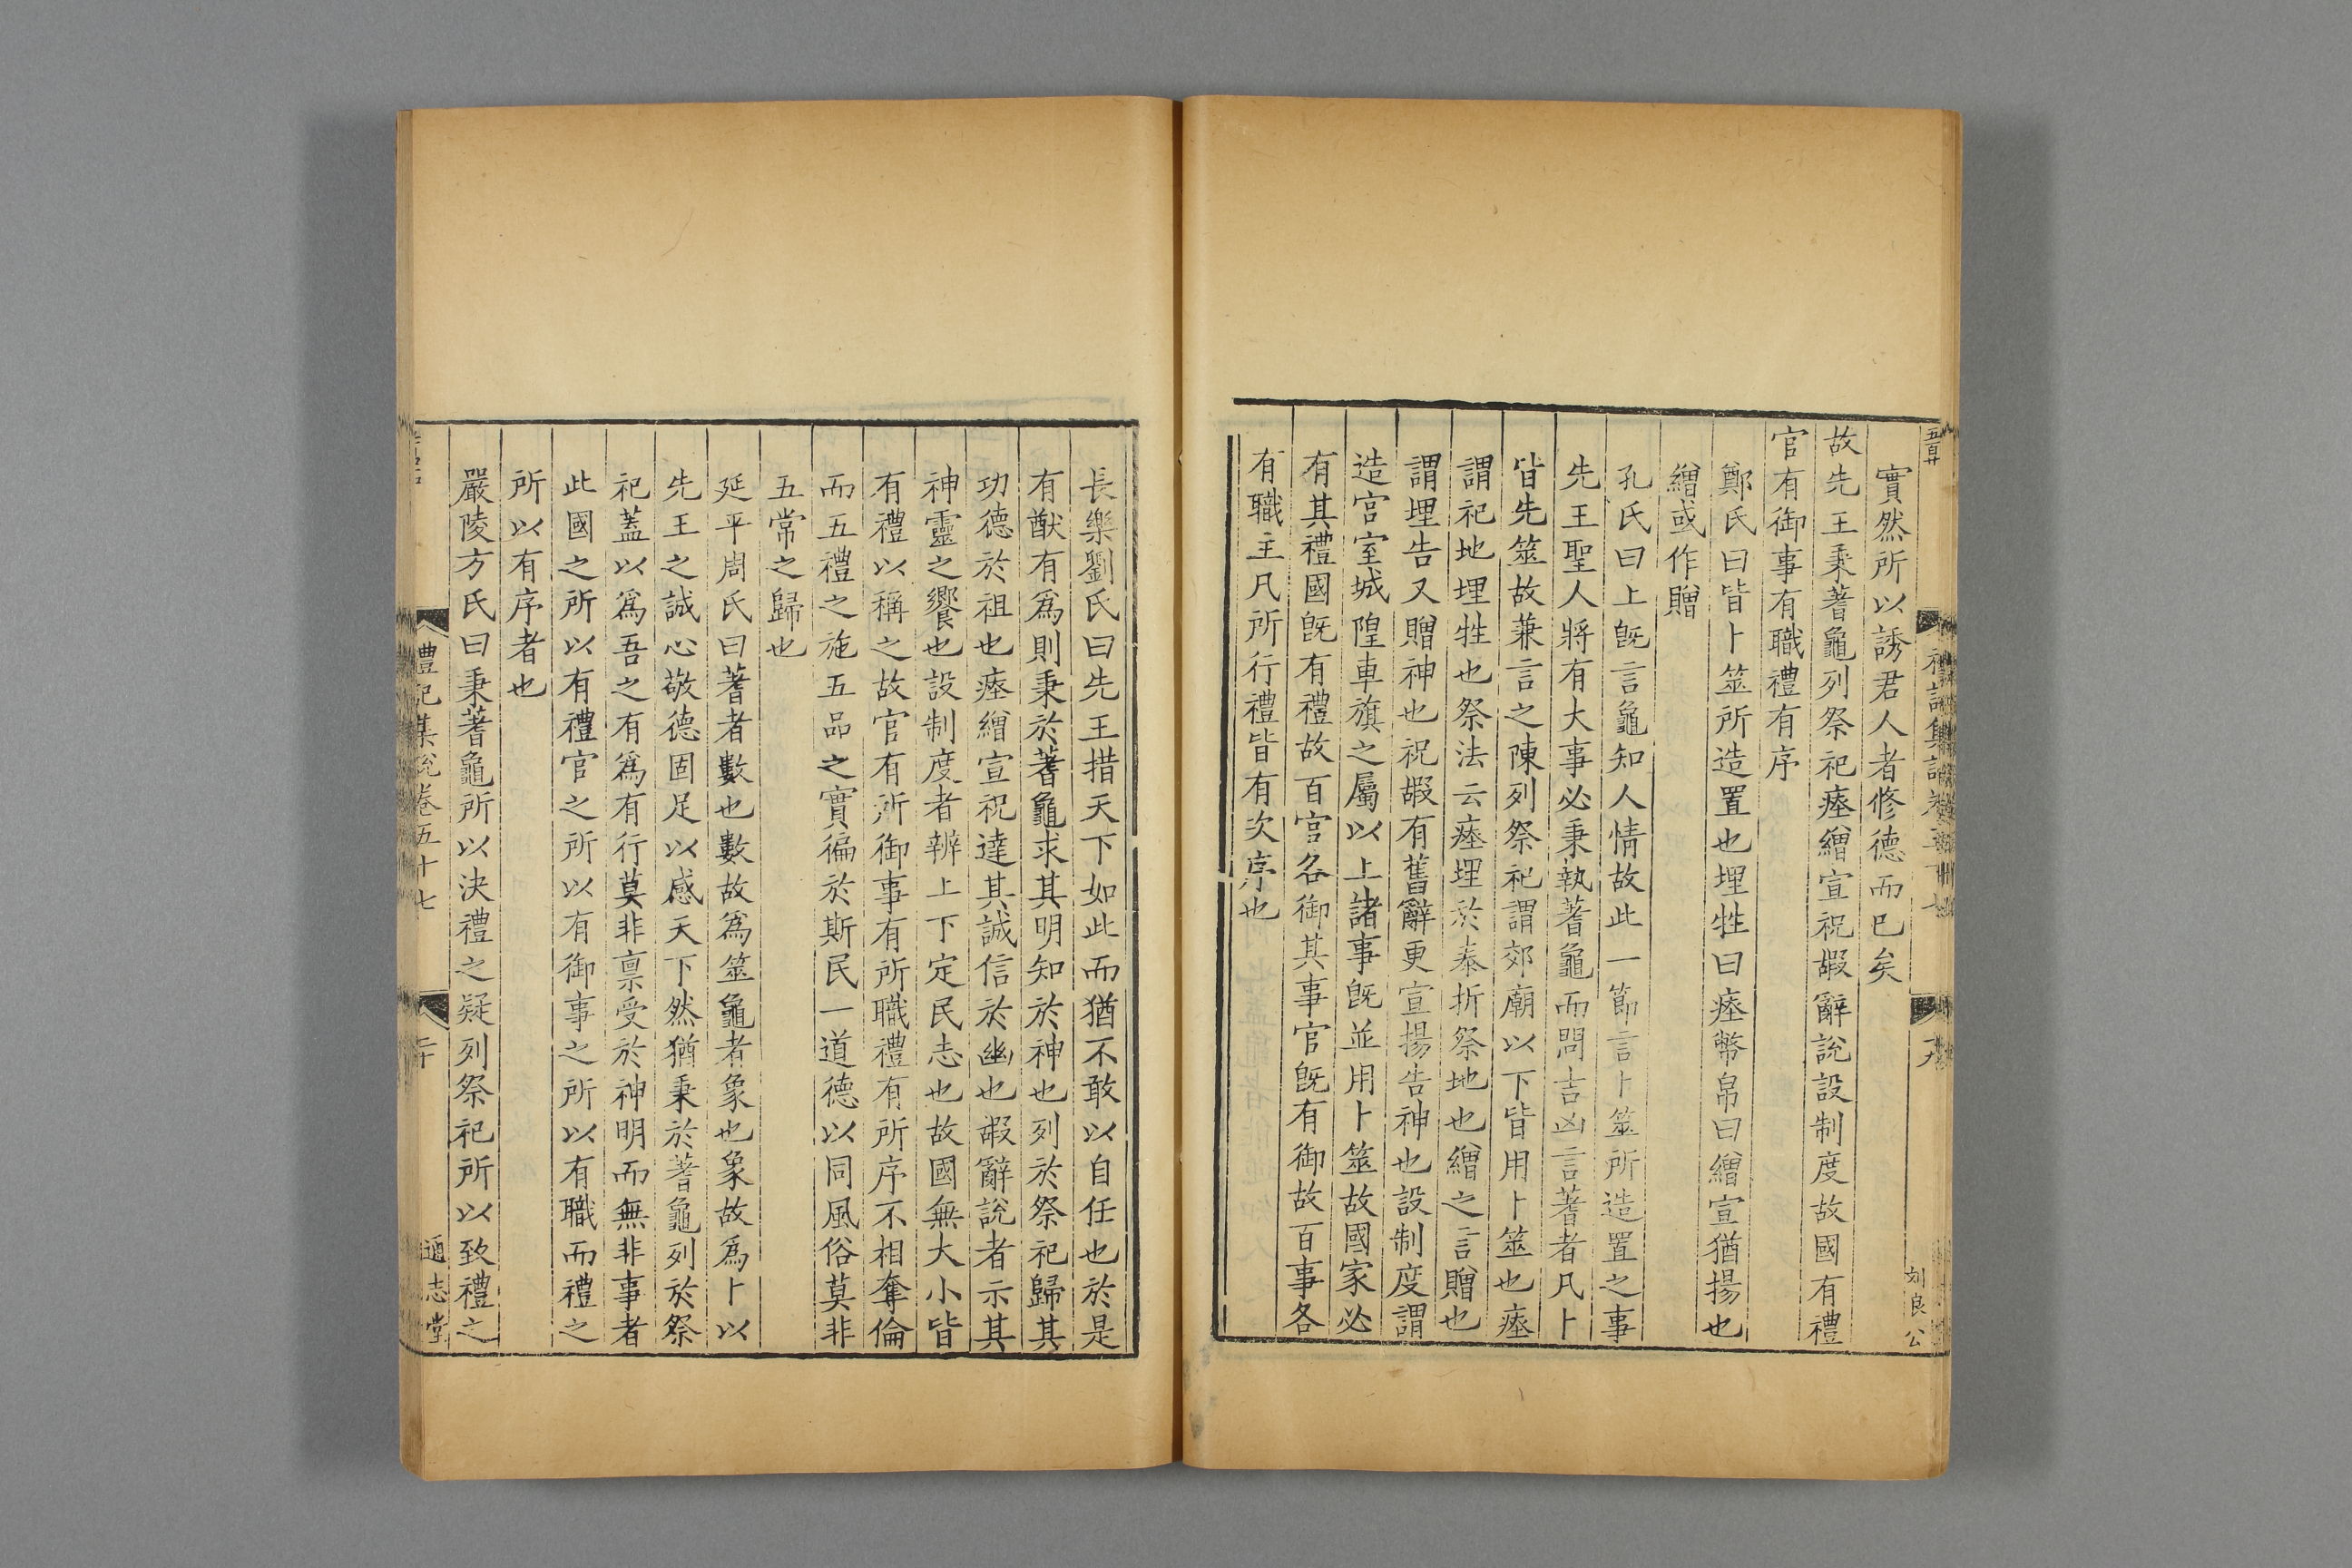 實然所以誘君人者修德而已矣
故先王秉蓍龜列祭祀瘞繒宣祝嘏辭說設制度故國有禮
官有御事有職禮有序
鄭氏曰皆卜筮所造置也埋牲曰瘞幣帛曰繒宣猶揚也
繒或作贈
孔氏曰上旣言龜知人情故此一節言卜筮所造置之事
先王聖人將有大事必秉執蓍龜而問吉凶言蓍者凡卜
皆先筮故兼言之陳列祭祀謂郊廟以下皆用卜筮也瘞
謂祀地埋牲也祭法云瘞埋於泰折祭地也繒之言贈也
謂埋告又贈神也祝嘏有舊辭更宣揚告神也設制度謂
造宮室城隍車旗之屬以上諸事旣並用卜筮故國家必
有其禮國旣有禮故百官各御其事官旣有御故百事各
有職主凡所行禮皆有次序也
十九
刘良公
長樂劉氏曰先王措天下如此而猶不敢以自任也於是
有猷有爲則秉於蓍龜求其明知於神也列於祭祀歸其
功德於祖也瘞繒宣祝達其誠信於幽也嘏辭說者示其
神靈之饗也設制度者辨上下定民志也故國無大小皆
有禮以稱之故官有所御事有所職禮有所序不相奪倫
而五禮之施五品之實徧於斯民一道德以同風俗莫非
五常之歸也
延平周氏曰蓍者數也數故爲筮龜者象也象故爲卜以
先王之誠心敬德固足以感天下然猶秉於蓍龜列於祭
祀蓋以爲吾之有爲有行莫非禀受於神明而無非事者
此國之所以有禮官之所以有御事之所以有職而禮之
所以有序者也
嚴陵方氏曰秉蓍龜所以決禮之疑列祭祀所以致禮之
禮記集說卷五十七
二十
通志堂